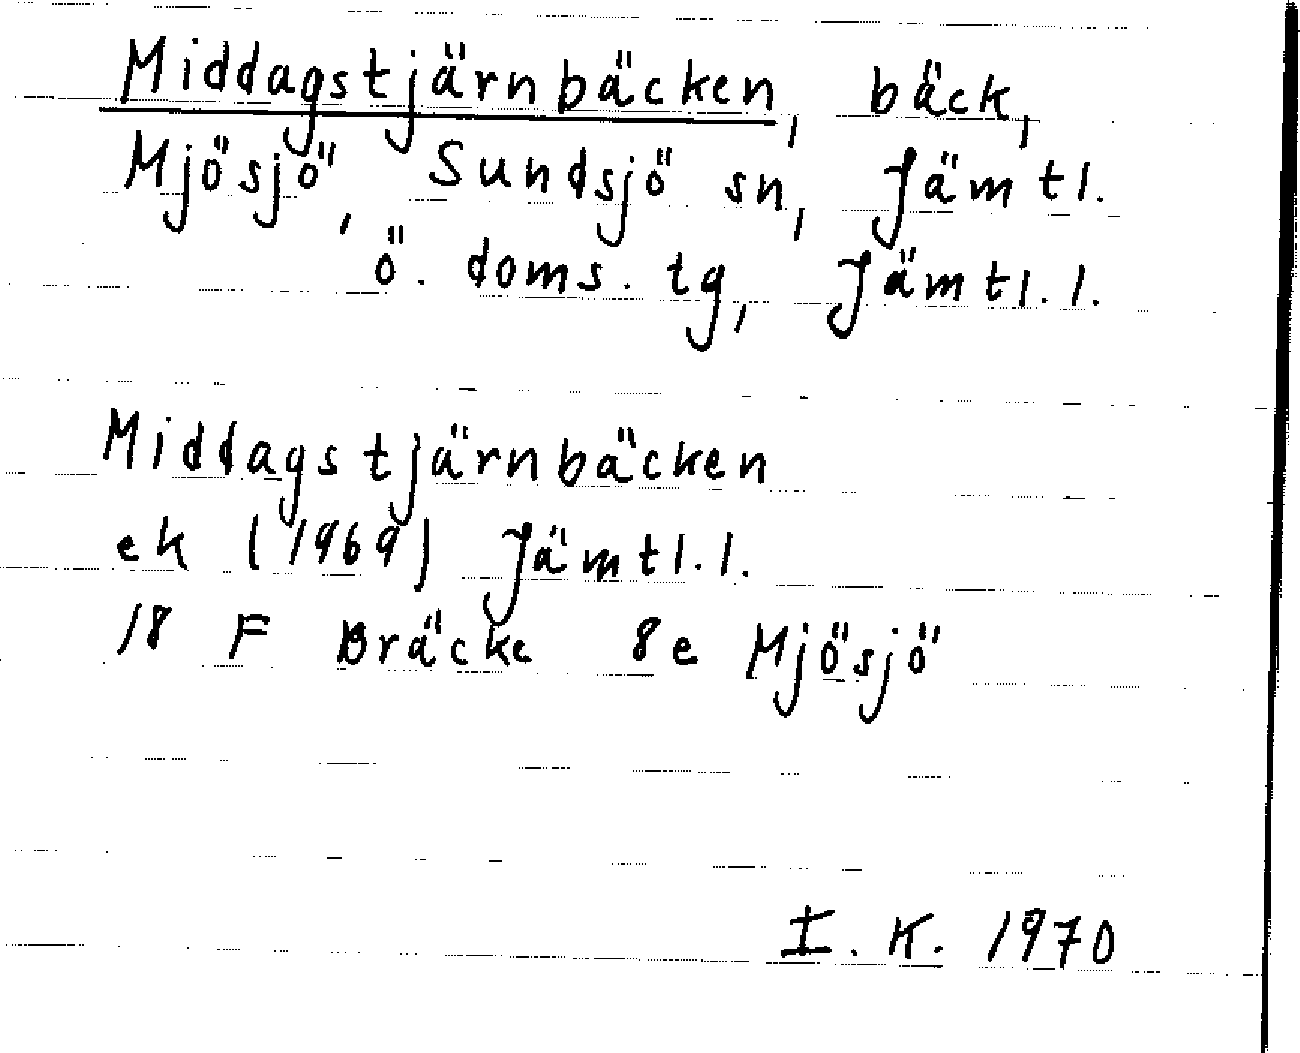 Middagstjärnbäcken, bäck,
Mjösjö, Sundsjö sn, Jämtl.
ö. doms. tg, Jämtl. l.
Middagstjärnbäcken
ek (1969) Jämtl. l.
18 F Bräcke 8e Mjösjö
I. K. 1970